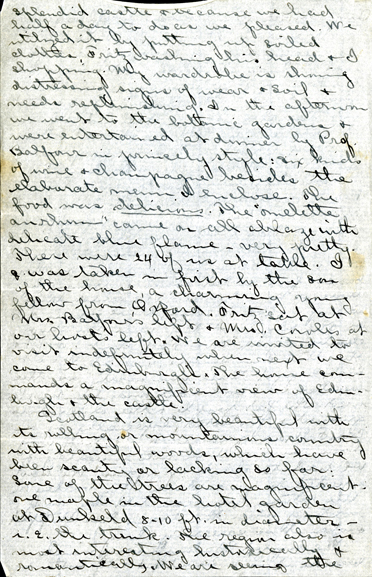 splendid castle & because we had
half a day to do as we pleased. We
utilized it by putting up soiled
clothes, Fritz washing his head & I
shopping. My wardrobe is showing
distressing signs of wear & soil &
needs replenishing. In the afternoon
we went to the botanic gardens &
were entertained at dinner by Prof.
Balfour in princely style: six kinds
of wine & champagne besides the
elaborate menu I enclose. The
food was delicious. The "omelette
au rhum" came on all ablaze with
delicate blue flame - very pretty.
There were 24 of us at table. I
was taken in first by the son
of the house, a charming young
fellow from Oxford. Fritz sat at
Mrs. Balfour's left & Mrs. Cowles at
our host's left. We are invited to
visit indefinitely when next we
come to Edinburgh. The house com-
mands a magnificent view of Edin-
burgh & the castle.
Scotland is very beautiful with
its rolling or mountainous country
with beautiful woods, which have
been scant or lacking so far.
Some of the trees are magnificent -
one maple in the hotel garden
at Dunkeld 8-10 ft. in diameter -
i.e. the trunk. The region also is
most interesting historically &
romantically. We are seeing the